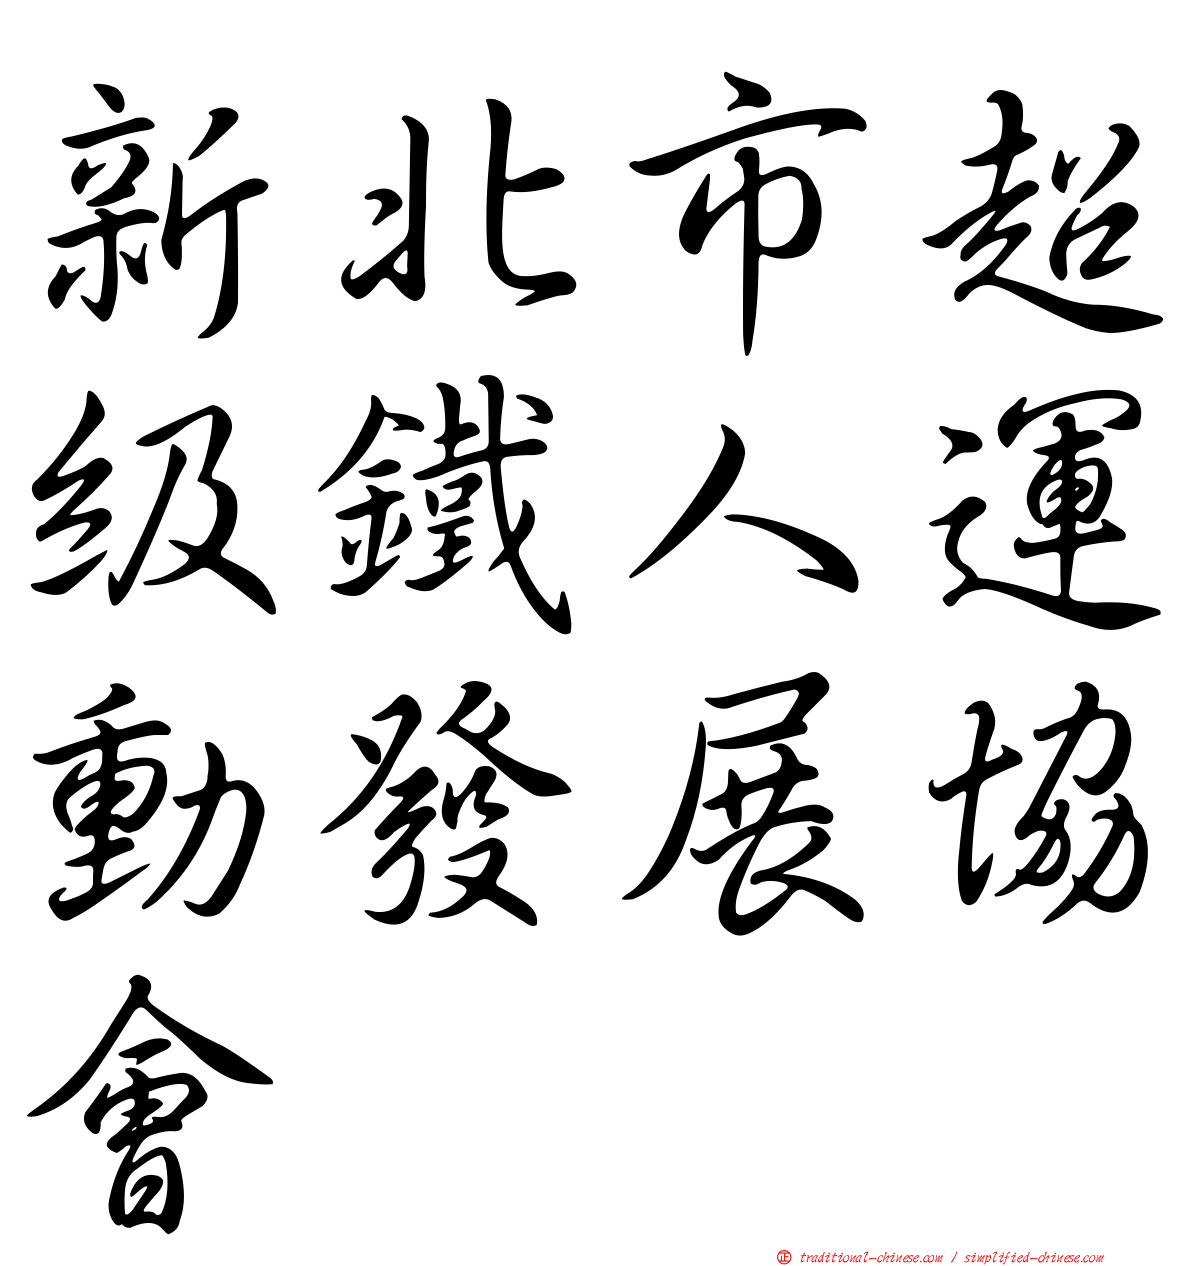 新北市超
級鐵人運
動發展協
會
㊣ traditional-chinese.com / simplified-chinese.com